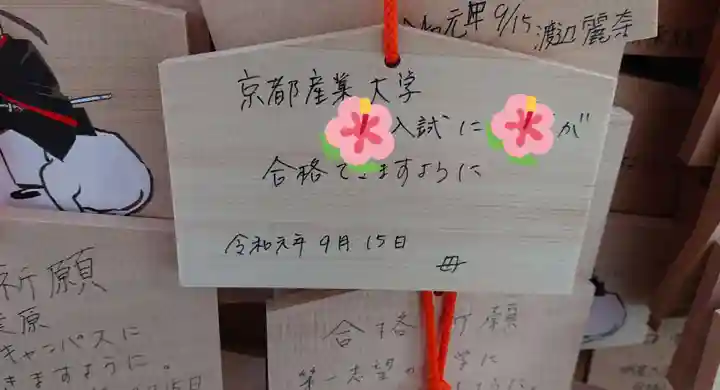 元年 9/15 渡辺麗奈
京都産業大学
入試に が
合格できますように
令和元年 9月 15日
母
祈願
原
キャンパスに
きますように。
15日
合格祈願
第一志望の 学に